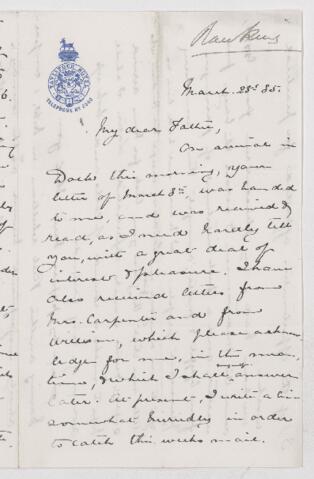 Rawkins
TELEPHONE No 2090
March. 23rd 85.
My dear Father,
On arrival in
Dock this morning, your
letter of March 3rd, was handed
to me, and was received &
read, as I need hardly tell
you, with a great deal of
interest & pleasure. I have
also received letters from
Mrs. Carpenter and from
which please acknow
ledge for me, in the mean
time, & which I shall myself answer
later. At present, I write a
somewhat hurriedly in order
to catch this weeks mail.